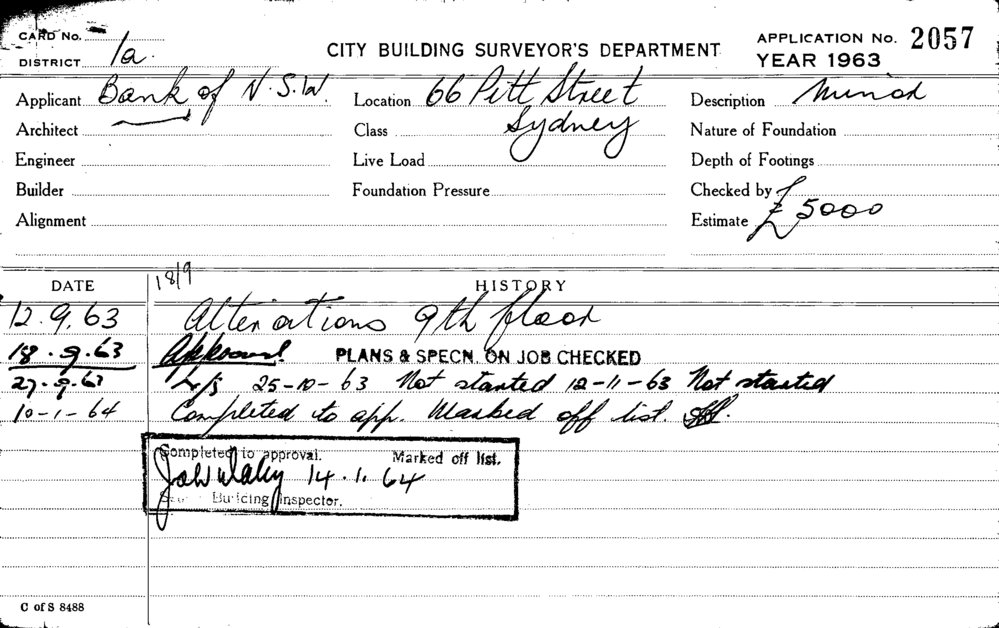 CARD No.
DISTRICT 1a.
CITY BUILDING SURVEYOR'S DEPARTMENT
APPLICATION No. 2057
YEAR 1963
Applicant Bank of N.S.W. Location 66 Pitt Street Description Minor
Architect Class Sydney Nature of Foundation
Engineer Live Load Depth of Footings
Builder Foundation Pressure Checked by
Alignment Estimate £5000
DATE 18/9 HISTORY
12.9.63 Alterations 9th floor
18.9.63 Approved. PLANS & SPECN. ON JOB CHECKED
27.9.63 25-10-63 Not started 12-11-63 Not started
10-1-64 Completed to app. Marked off list.
Completed to approval. Marked off list.
14.1.64
Building Inspector.
C of S 8488